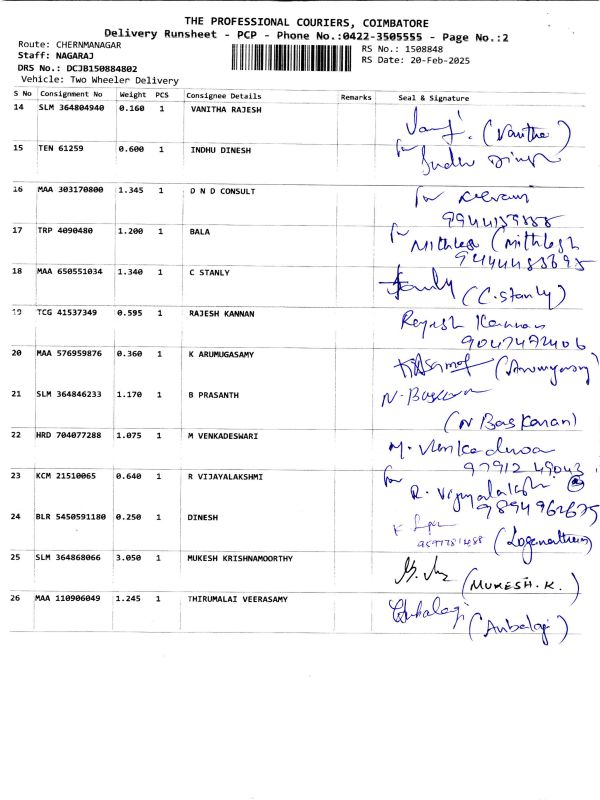 THE PROFESSIONAL COURIERS, COIMBATORE
Delivery Runsheet - PCP - Phone No.:0422-3505555 - Page No.:2
Route: CHERNMANAGAR
Staff: NAGARAJ
DRS No.: DCJB150884802
Vehicle: Two Wheeler Delivery
RS No.: 1508848
RS Date: 20-Feb-2025
S No Consignment No Weight PCS Consignee Details Remarks Seal & Signature
14 SLM 364804940 0.160 1 VANITHA RAJESH
(Vanitha)
15 TEN 61259 0.600 1 INDHU DINESH for Indhu Dinesh
16 MAA 303170800 1.345 1 D N D CONSULT for
17 TRP 4090480 1.200 1 BALA for Mithlesh (Mithlesh
18 MAA 650551034 1.340 1 C STANLY Stanly (C.Stanly)
19 TCG 41537349 0.595 1 RAJESH KANNAN Rajesh Kannan
20 MAA 576959876 0.360 1 K ARUMUGASAMY
21 SLM 364846233 1.170 1 B PRASANTH N. Baskaran
(N Baskaran)
22 HRD 704077288 1.075 1 M VENKADESWARI
97912 49043
23 KCM 21510065 0.640 1 R VIJAYALAKSHMI for R. Vijayalakshmi
9894962675
24 BLR 5450591180 0.250 1 DINESH
25 SLM 364868066 3.050 1 MUKESH KRISHNAMOORTHY
(MUKESH.K.)
26 MAA 110906049 1.245 1 THIRUMALAI VEERASAMY
(Anbalagi)